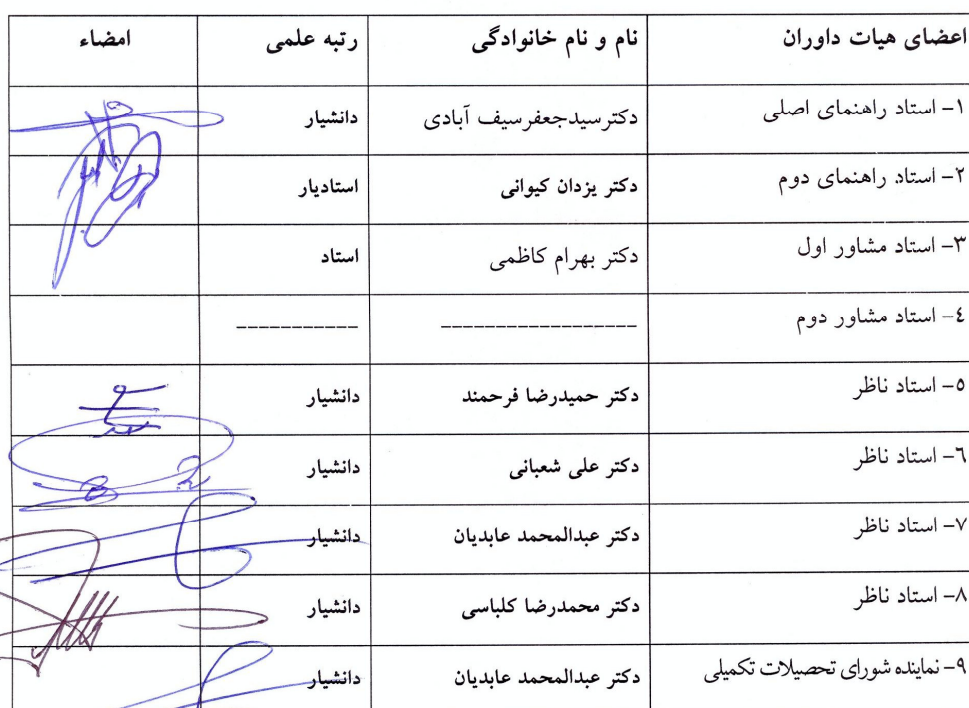 اعضای هیات داوران نام و نام خانوادگی رتبه علمی امضاء
۱- استاد راهنمای اصلی دکترسیدجعفرسیف آبادی دانشیار
۲- استاد راهنمای دوم دکتر یزدان کیوانی استادیار
۳- استاد مشاور اول دکتر بهرام کاظمی استاد
٤- استاد مشاور دوم ------------------ -----------
٥- استاد ناظر دکتر حمیدرضا فرحمند دانشیار
٦- استاد ناظر دکتر علی شعبانی دانشیار
۷- استاد ناظر دکتر عبدالمحمد عابدیان دانشیار
۸- استاد ناظر دکتر محمدرضا کلباسی دانشیار
۹- نماینده شورای تحصیلات تکمیلی دکتر عبدالمحمد عابدیان دانشیار